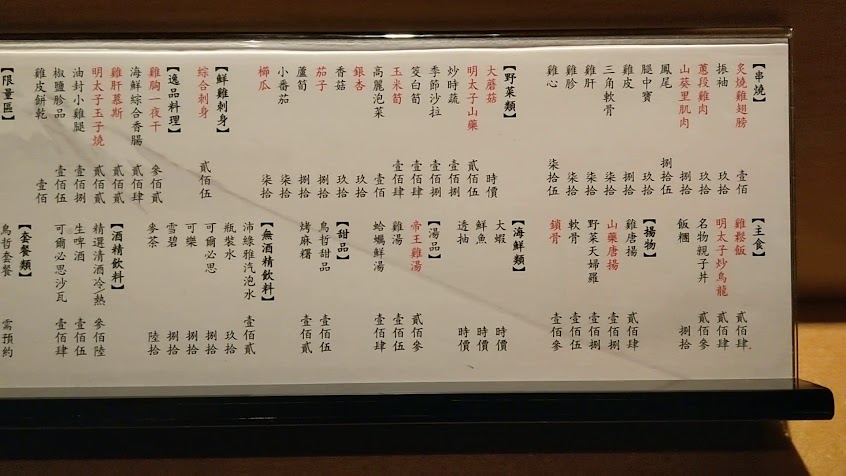 【串燒】
炙燒雞翅膀 壹佰
振袖 玖拾
蔥段雞肉 玖拾
山葵里肌肉 捌拾
鳳尾 捌拾伍
腿中寶 玖拾
雞皮 捌拾
三角軟骨 柒拾
雞肝 柒拾
雞胗 柒拾
雞心 柒拾伍
【野菜類】
大蘑菇 時價
明太子山藥 貳佰伍
炒時蔬 壹佰捌
季節沙拉 壹佰伍
筊白筍 壹佰肆
玉米筍 壹佰肆
高麗泡菜 壹佰
銀杏 玖拾
香菇 玖拾
茄子 捌拾
蘆筍 捌拾
小番茄 柒拾
櫛瓜 柒拾
【鮮雞刺身】
綜合刺身 貳佰伍
【逸品料理】
雞胸一夜干 參佰貳
海鮮綜合香腸 貳佰肆
雞肝慕斯 貳佰貳
明太子玉子燒 貳佰貳
油封小雞腿 壹佰捌
椒鹽胗品 壹佰伍
雞皮餅乾 壹佰
【限量區】
【主食】
雞鬆飯 貳佰肆
明太子炒烏龍 貳佰肆
名物親子丼 貳佰參
飯糰 捌拾
【揚物】
雞唐揚 貳佰肆
山藥唐揚 壹佰捌
野菜天婦羅 壹佰捌
軟骨 壹佰伍
鎖骨 壹佰參
【海鮮類】
大蝦 時價
鮮魚 時價
透抽 時價
【湯品】
帝王雞湯 貳佰參
雞湯 壹佰伍
蛤蠣鮮湯 壹佰肆
【甜品】
鳥哲甜品 壹佰伍
烤麻糬 壹佰貳
【無酒精飲料】
沛綠雅汽泡水 壹佰貳
瓶裝水 玖拾
可爾必思 捌拾
可樂 捌拾
雪碧 捌拾
麥茶 陸拾
【酒精飲料】
精選清酒冷/熱 參佰陸
生啤酒 壹佰伍
可爾必思沙瓦 壹佰肆
【套餐類】
鳥哲套餐 需預約